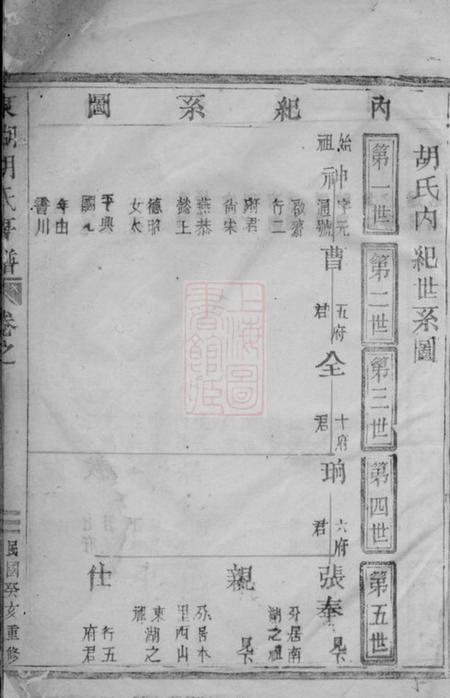 胡氏內紀世系圖
內紀系圖
第一世
第二世
第三世
第四世
第五世
始祖
神
字元
通號
啟齋
行二
府君
尚宋
燕恭
懿王
德昭
女太
平興
國九
年由
曹
五府
君
全
十府
君
珦
六府
君
張奉
分居南
湖之祖
親
分居本
里西山
東湖之
祖
仕
行五
府君
東湖胡氏宗譜
卷之一
民國癸亥重修
上海圖書館藏